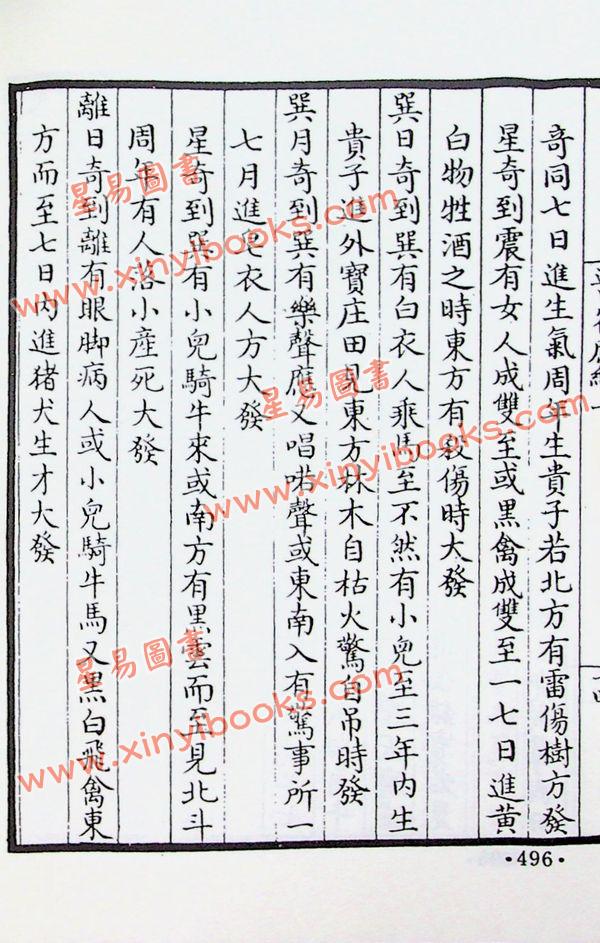 奇同七日進生氣周年生貴子若北方有雷傷樹方發
星奇到震有女人成雙至或黒禽成雙至一七日進黄
白物牲酒之時東方有殺傷時大發
巽日奇到巽有白衣人乘馬至不然有小兒至三年内生
貴子進外寶庄田見東方林木自枯火驚自吊時發
巽月奇到巽有樂聲應又唱喏聲或東南入有驚事所一
七月進皂衣人方大發
星奇到巽有小兒騎牛來或南方有黒雲而至見北斗
周年有人落小產死大發
離日奇到離有眼脚病人或小兒騎牛馬又黒白飛禽東
方而至七日内進猪犬生才大發
·496·
星易圖書
www.xinyibooks.com
星易圖書
www.xinyibooks.com
星易圖書
www.xinyibooks.com